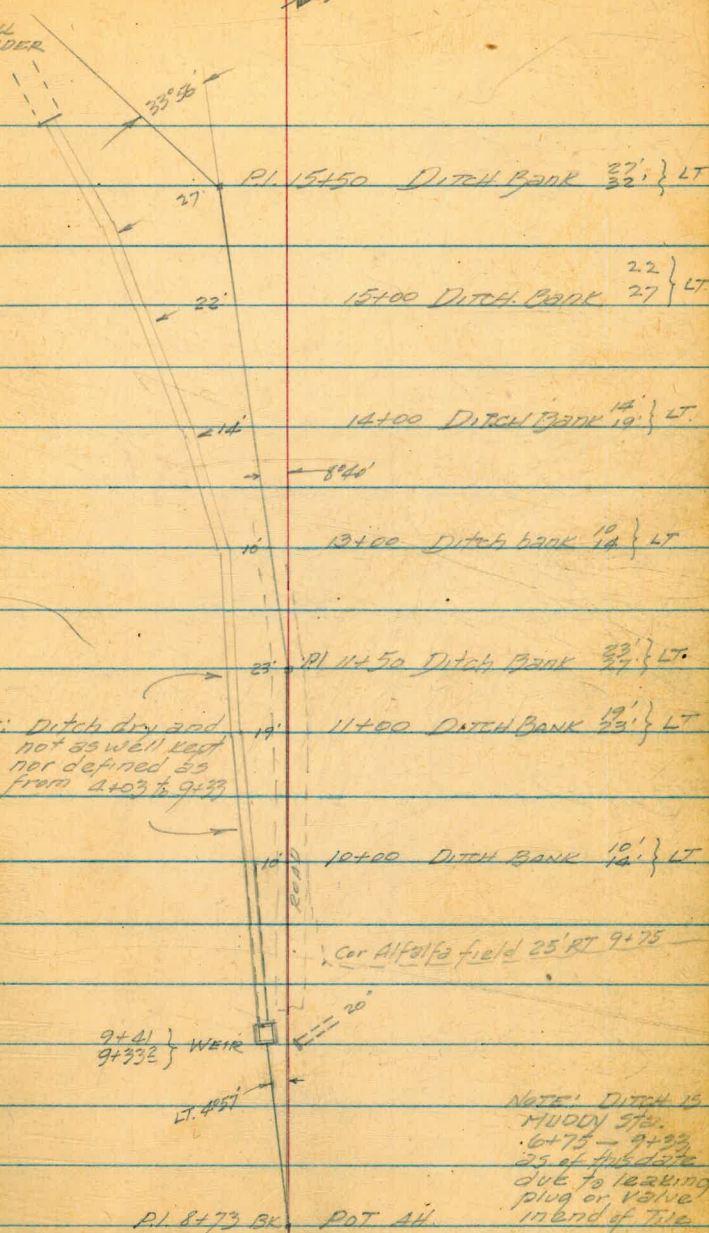 33°56'
27'
P.I. 15+50 DITCH. Bank 27' 32' } LT
22'
15+00 DITCH. Bank 22 27 } LT.
14'
14+00 DITCH Bank 14' 19' } LT.
8°40'
10'
13+00 Ditch bank 10 14 } LT.
23'
P.I 11+50 Ditch Bank 23' 27' } LT.
19'
11+00 DITCH BANK 19' 23' } LT
Ditch dry and
not as well kept
nor defined as
from 4+03 to 9+33
10'
10+00 DITCH BANK 10' 14' } LT
ROAD
Cor Alfalfa field 25' RT 9+75
20"
9+41
9+33² } WEIR
LT. 4°57'
NOTE: DITCH IS
MUDDY Sta.
6+75 — 9+33
as of this date
due to leaking
plug or valve
in end of Tile
P.I. 8+73 BK POT AH.